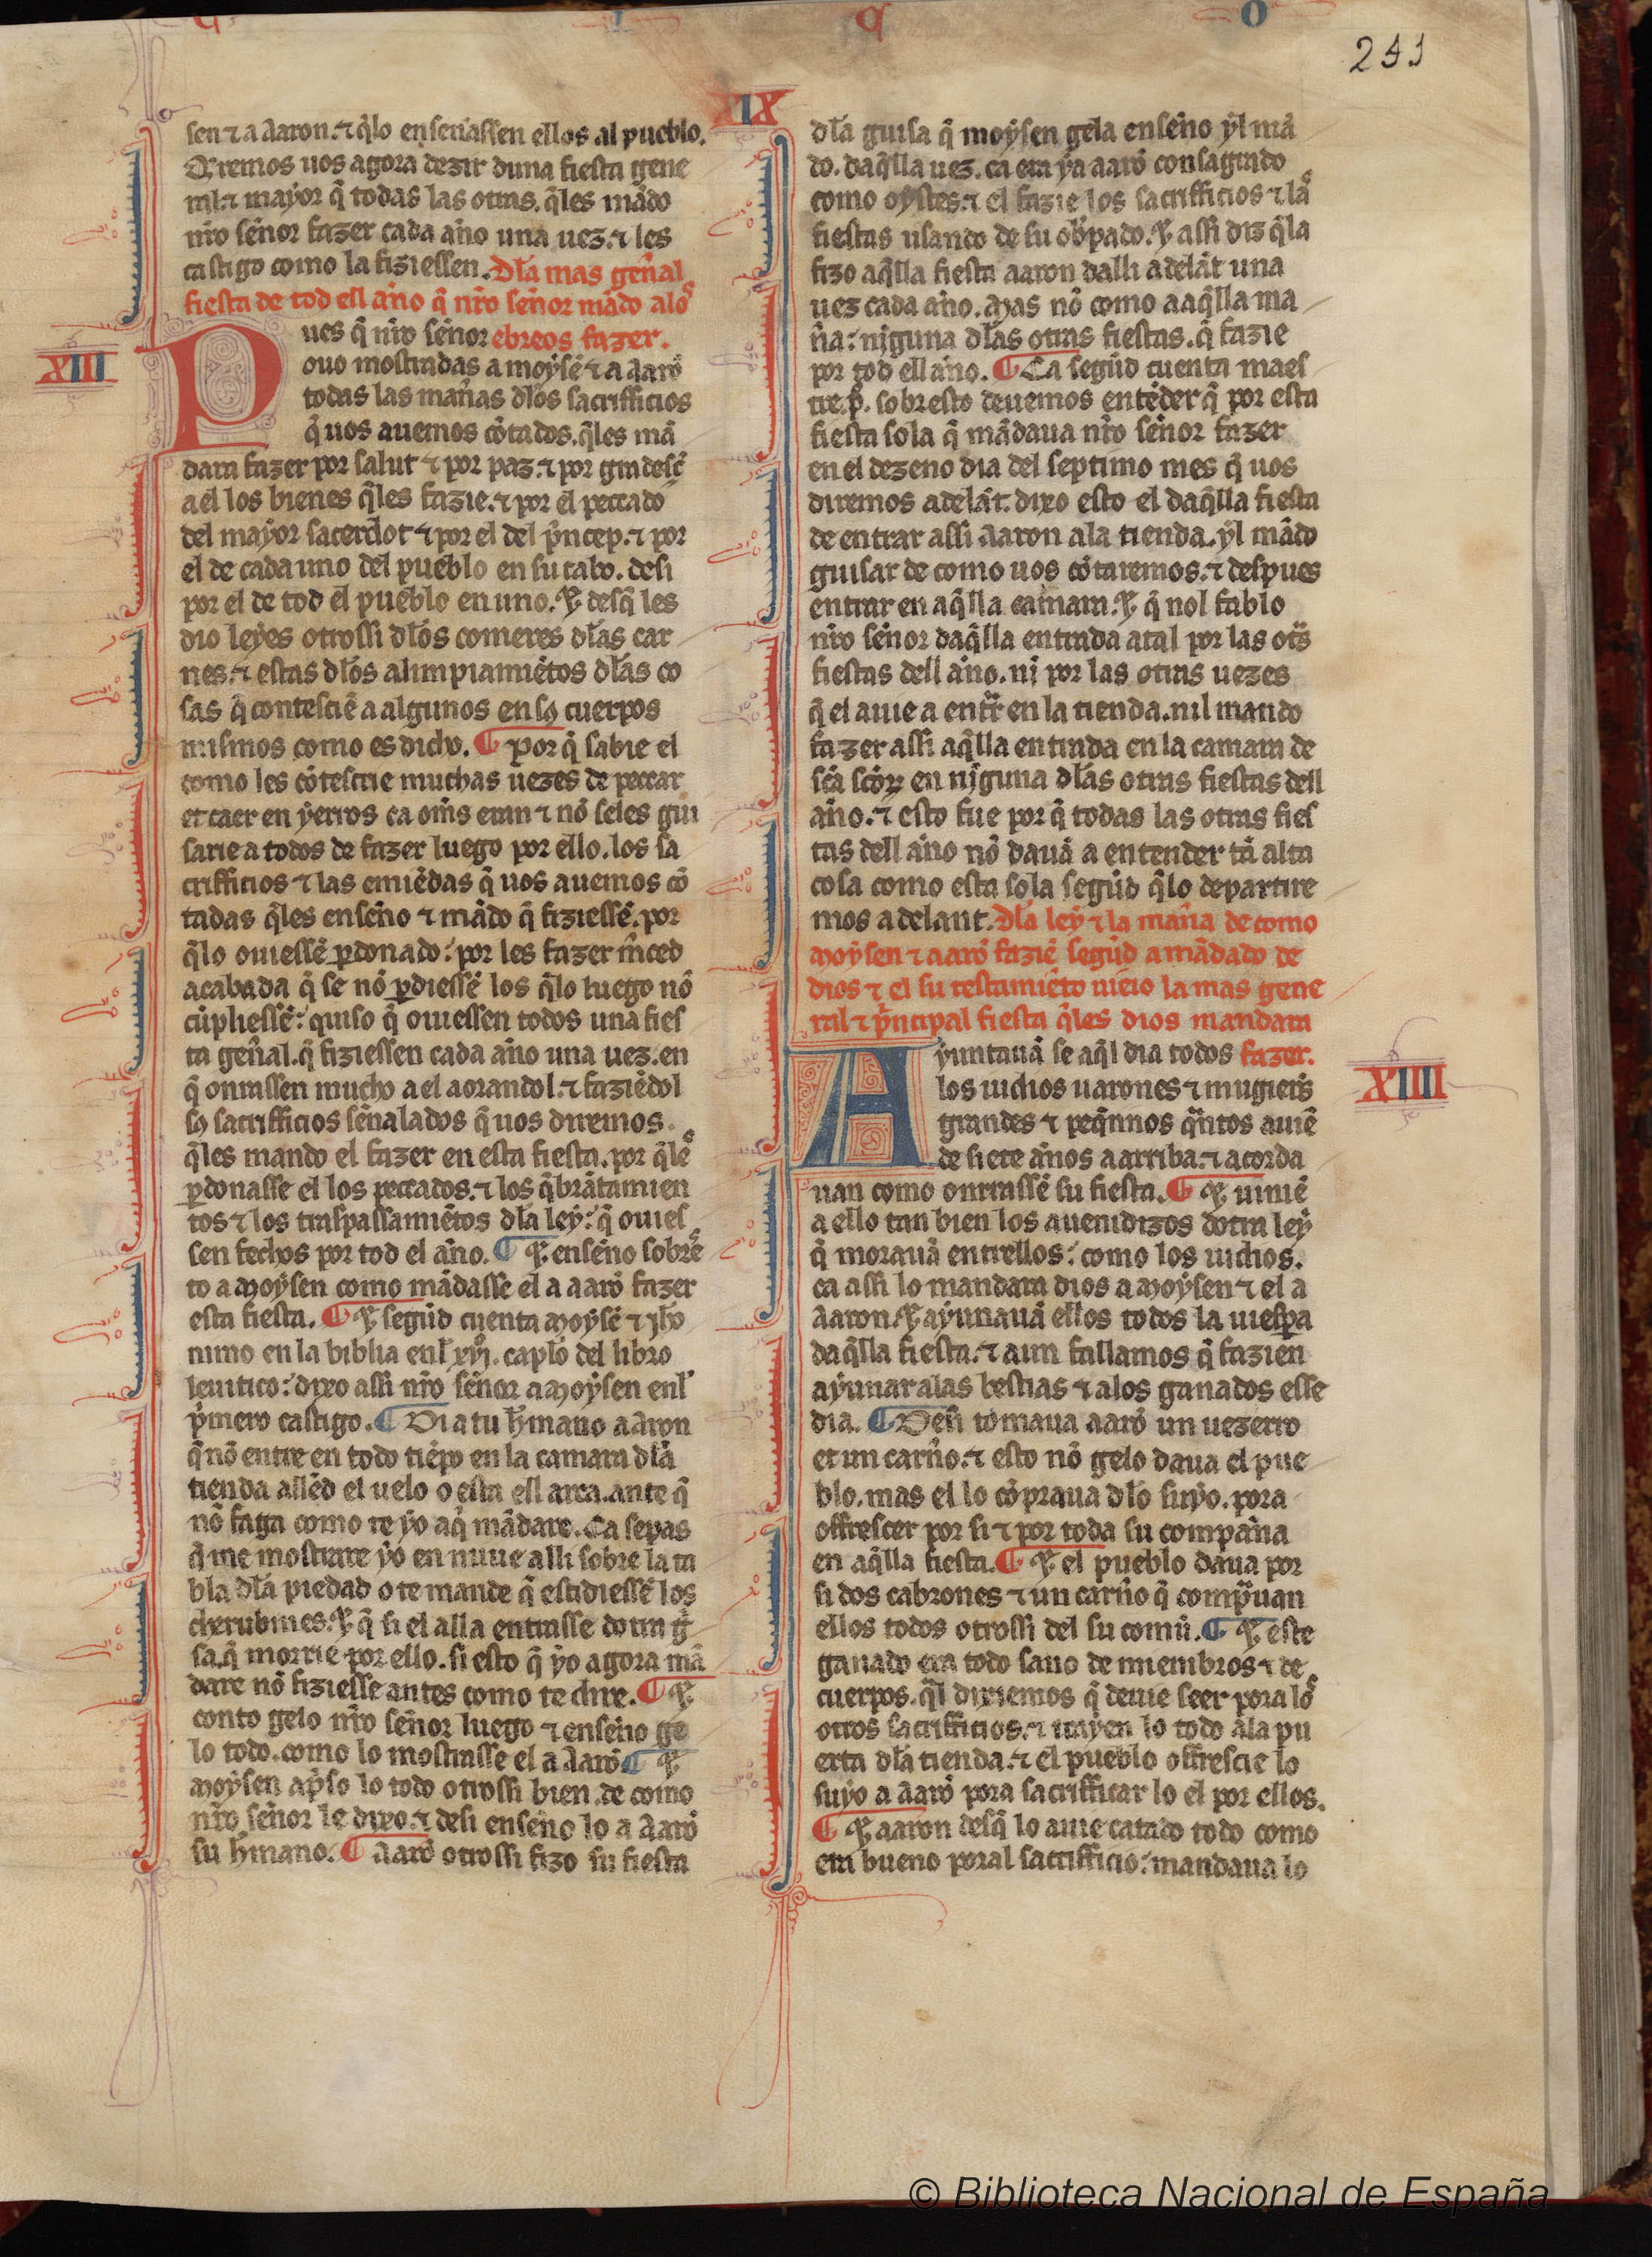 O
241
XIX
sen ⁊ a Aaron. ⁊ q̃lo enseñassen ellos al pueblo.
Q̃remos uos agora dezir duna fiesta gene
ral ⁊ mayor q̃ todas las otras. q̃les mãdo
nr̃o sẽnor fazer cada año una uez. ⁊ les
castigo como la fiziessen. Dl̃a mas geñal
fiesta de tod ell año q̃ nr̃o señor mãdo alos
XIII
Pues q̃ nr̃o señor ebreos fazer.
ouo mostradas a moysẽ ⁊ a Aarõ
todas las mañas dl̃os sacrifficios
q̃ uos auemos cõtados. q̃les mã
dara fazer por salut ⁊ por paz. ⁊ por gradesc̃
a el los bienes q̃les fazie. ⁊ por el peccado
del mayor sacerdot ⁊ por el del p̃ncep. ⁊ por
el de cada uno del pueblo en su cabo. desi
por el de tod el pueblo en uno. Et desq̃ les
dio leyes otrossi dl̃os comeres dl̃as car
nes. ⁊ estas dl̃os alimpiamiẽtos dl̃as co
sas q̃ contesciẽ a algunos en sos cuerpos
mismos como es dicho. ¶ Por q̃ sabie el
como les cõtescrie muchas uezes de peccar
et caer en yerros ca oms̃ eran ⁊ nõ seles gui
sarie a todos de fazer luego por ello. los sa
crifficios ⁊ las emiẽdas q̃ uos auemos cõ
tadas q̃les enseño ⁊ mãdo q̃ fiziessẽ. por
q̃lo ouiessẽ ꝑdonado: por les fazer m̃ced
acabada q̃ se nõ ꝑdiessẽ los q̃lo luego nõ
cũpliessẽ: quiso q̃ ouiessen todos una fies
ta geñal. q̃ fiziessen cada año una uez. en
q̃ onrassen mucho a el aorandol. ⁊ faziẽdol
sos sacrifficios señalados q̃ uos diremos.
q̃les mando el fazer en esta fiesta. por q̃les
ꝑdonasse el los peccados. ⁊ los q̃brãtamien
tos ⁊ los traspassamiẽtos dl̃a ley: q̃ ouies
sen fechos por tod el año. ¶ Et enseño sobres
to a Moysen como mãdasse el a aarõ fazer
esta fiesta. ¶ Et segũd cuenta Moysẽ ⁊ Jho
nimo en la biblia enl xvj. caplo del libro
leuitico: dixo assi nr̃o señor a Moysen enl
p̃mero castigo. ¶ Di a tu h̃mano aaron
q̃ nõ entre en todo tiẽpo en la camara dl̃a
tienda allẽd el uelo o esta ell arca. ante q̃
nõ faga como te yo aq̃ mãdare. Ca sepas
q̃ me mostrare yo en nuue alli sobre la ta
bla dl̃a piedad o te mande q̃ estudiessẽ los
cherubines. Et q̃ si el alla entrasse dotra gi
sa. q̃ morrie por ello. si esto q̃ yo agora mã
dare nõ fiziesse antes como te dire. ¶ Et
conto gelo nr̃o señor luego ⁊ enseño ge
lo todo. como lo mostrasse el a Aarõ ¶ Et
Moysen ap̃so lo todo otrossi bien. de como
nr̃o señor le dixo. ⁊ desi enseño lo a Aarõ
su h̃mano. ¶ Aarõ otrossi fizo su fiesta
dl̃a guisa q̃ moysen gela enseño yl mã
do. daq̃lla uez. ca era ya aarõ consagrado
como oystes. ⁊ el fazie los sacrifficios ⁊ las
fiestas usando de su ob̃pado. Et assi diz q̃la
fizo aq̃lla fiesta aaron dalli adelãt una
uez cada año. Mas nõ como aaq̃lla ma
ña: njguna dl̃as otras fiestas. q̃ fazie
por tod ell año. ¶ Ca segũd cuenta maes
tre. p̃. sobresto deuemos entẽder q̃ por esta
fiesta sola q̃ mãdaua nr̃o señor fazer
en el dezeno dia del septimo mes q̃ uos
diremos adelãt. dixo esto el daq̃lla fiesta
de entrar assi Aaron ala tienda. yl mãdo
guisar de como uos cõtaremos. ⁊ despues
entrar en aq̃lla camara. Et q̃ nol fablo
nr̃o señor daq̃lla entrada atal por las otas
fiestas dell año. nj por las otras uezes
q̃ el auie a entr̃ en la tienda. nil mando
fazer assi aq̃lla entrada en la camara de
scã scõꝝ en njguna dl̃as otras fiestas dell
año. ⁊ esto fue por q̃ todas las otras fies
tas dell año nõ dauã a entender tã alta
cosa como esta sola segũd q̃lo departire
mos adelant. Dl̃a ley ⁊ la maña de como
Moysen ⁊ aarõ faziẽ segũd amãdado de
dios ⁊ el su testamiẽto uieio la mas gene
ral ⁊ p̃ncipal fiesta q̃les dios mandara
Ayuntauã se aq̃l dia todos fazer.
XIIII
los iudios uarones ⁊ mugiers̃
grandes ⁊ peq̃nnos q̃ntos auiẽ
de siete años a arriba. ⁊ acorda
uan como onrrassẽ su fiesta. ¶ Et uiniẽ
a ello tan bien los auenidizos dotra ley
q̃ morauã entrellos: como los iudios.
ca assi lo mandara dios a Moysen ⁊ el a
Aaron. Et ayunauã ellos todos la uiespa
daq̃lla fiesta. ⁊ aun fallamos q̃ fazien
ayunar alas bestias ⁊ alos ganados esse
dia. ¶ Deñ tomaua aarõ un uezerro
et un carño. ⁊ esto nõ gelo daua el pue
blo. mas el lo cõpraua dl̃o suyo. pora
offrescer por si ⁊ por toda su compaña
en aq̃lla fiesta. ¶ Et el pueblo daua por
si dos cabrones ⁊ un carño q̃ compᵃuan
ellos todos otrossi del su comũ. ¶ Et este
ganado era todo sano de miembros ⁊ de
cuerpos. q̃l dixiemos q̃ deuie seer pora los
otros sacrifficios. ⁊ trayen lo todo ala pu
erta dl̃a tienda. ⁊ el pueblo offrescie lo
suyo a Aarõ pora sacrifficar lo el por ellos.
¶ Et aaron desq̃ lo auie catado todo como
era bueno poral sacrifficio: mandaua lo
© Biblioteca Nacional de España